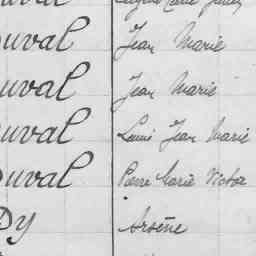 uval Jean Marie
uval Jean Marie
uval Louis Jean Marie
uval Pierre Marie Victor
Dy Arsène